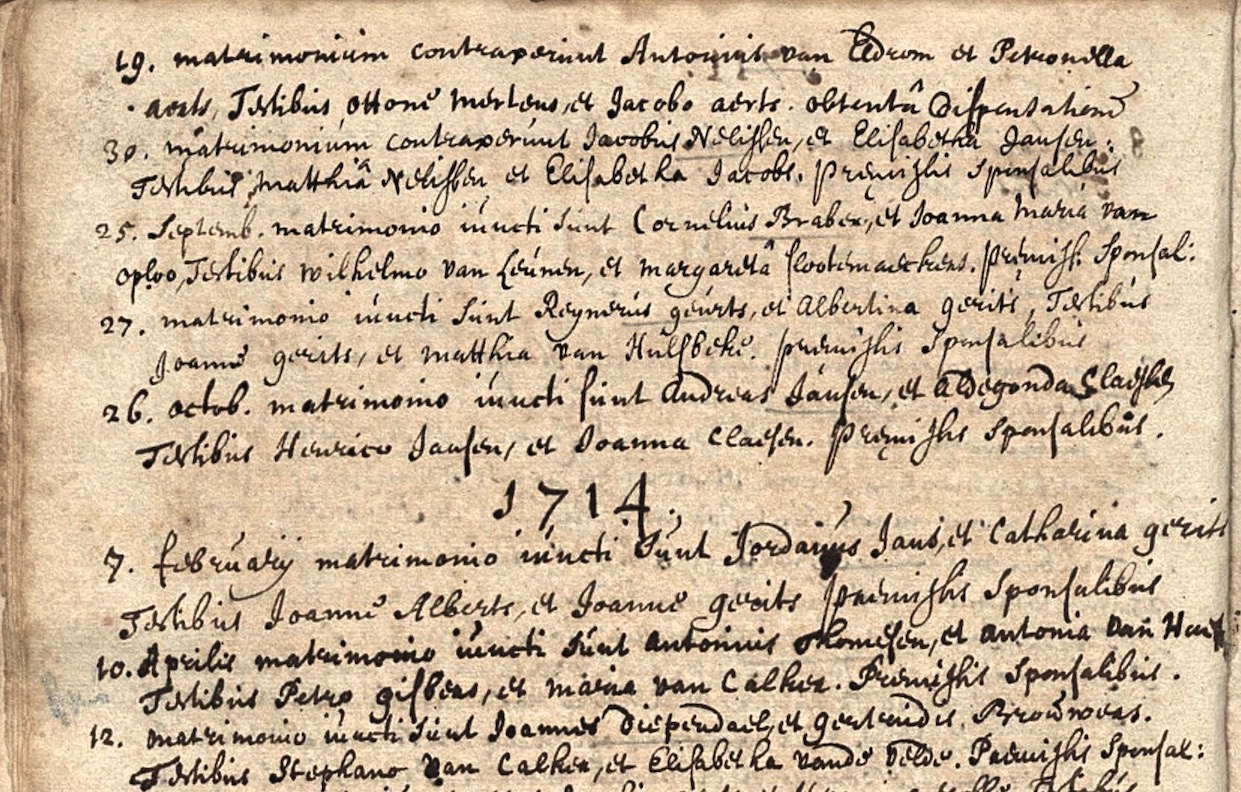 19. matrimonium contraxerunt Antonius van Eldrom et Petronella
aerts, Testibus Ottone Mertens, et Jacobo aerts. obtentâ dispensatione
30. matrimonium contraxerunt Jacobus Nelissen, et Elisabetha Jansen.
Testibus Matthiâ Nelissen et Elisabetha Jacobs. Premissis Sponsalibus
25. Septemb. matrimonio iuncti Sunt Cornelius Braber, et Joanna Maria van
oploo, Testibus wilhelmo van Leunen, et margaretâ slootemaeckers. Premiss. Sponsal:
27. matrimonio iuncti Sunt Reynerus geurts, et Albertina gerits, Testibus
Joanne gerits, et matthia van Hulsbeke. premissis Sponsalibus
26. octob. matrimonio iuncti sunt Andreas Jansen, et Aldegonda
Testibus Henrico Jansen, et Joanna Claesen. Premissis Sponsalibus.
1714.
7. februarij matrimonio iuncti Sunt Jordanus Jans, et Catharina gerits
Testibus Joanne Alberts, et Joanne gerits premissis Sponsalibus
10. Aprilis matrimonio iuncti Sunt Antonius Thomesen, et antonia van
Testibus Petro gisbers, et maria van Calker. Premissis Sponsalibus.
12. matrimonio iuncti Sunt Joannes Diependael, et gertrudis Brouwers.
Testibus Stephano van Calker, et Elisabetha vande velde. Premissis Sponsal: